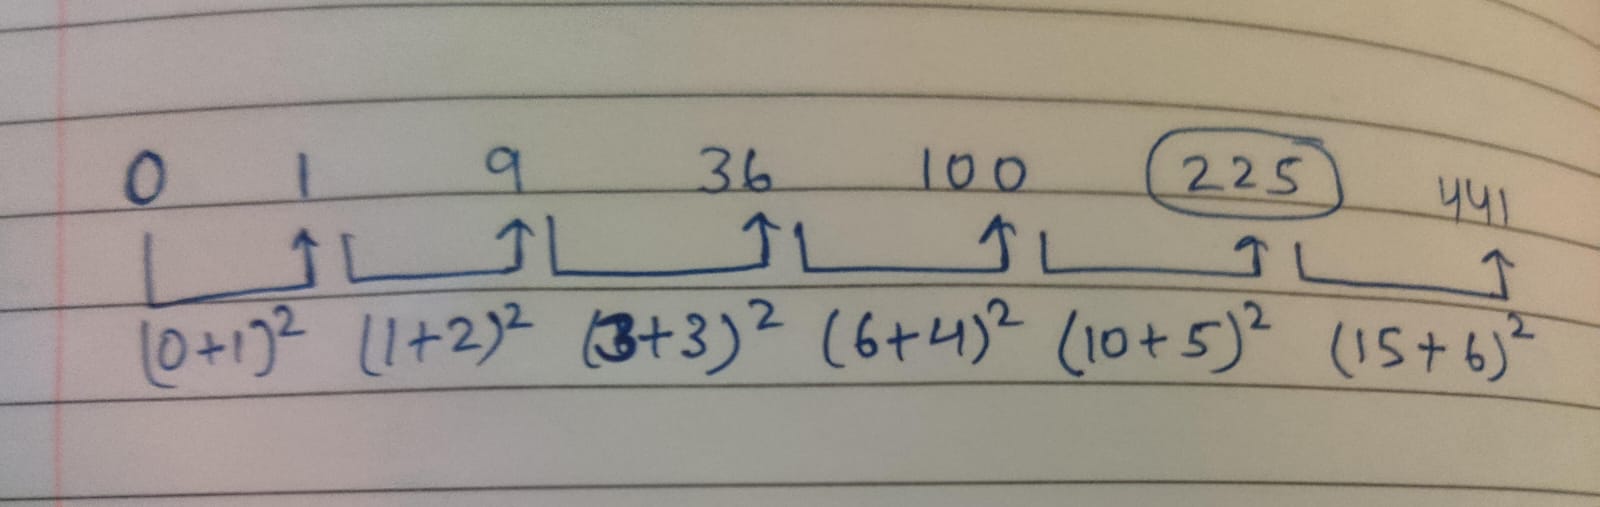 0 1 9 36 100 225 441
(0+1)² (1+2)² (3+3)² (6+4)² (10+5)² (15+6)²